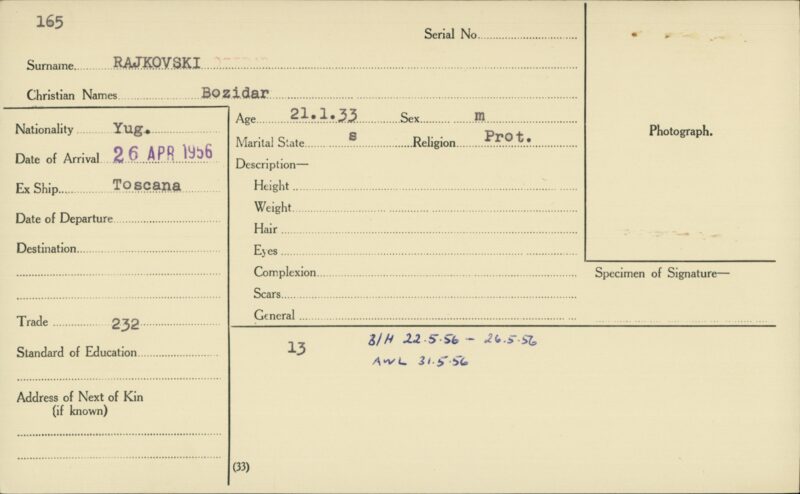 165
Serial No.
Surname RAJKOVSKI
Christian Names Bozidar
Nationality Yug.
Date of Arrival 26 APR 1956
Ex Ship Toscana
Date of Departure
Destination
Trade 232
Standard of Education
Address of Next of Kin
(if known)
Age 21.1.33 Sex m
Marital State s Religion Prot.
Description—
Height
Weight
Hair
Eyes
Complexion
Scars
General
Photograph.
Specimen of Signature—
13
B/H 22.5.56 - 26.5.56
AWL 31.5.56
(33)